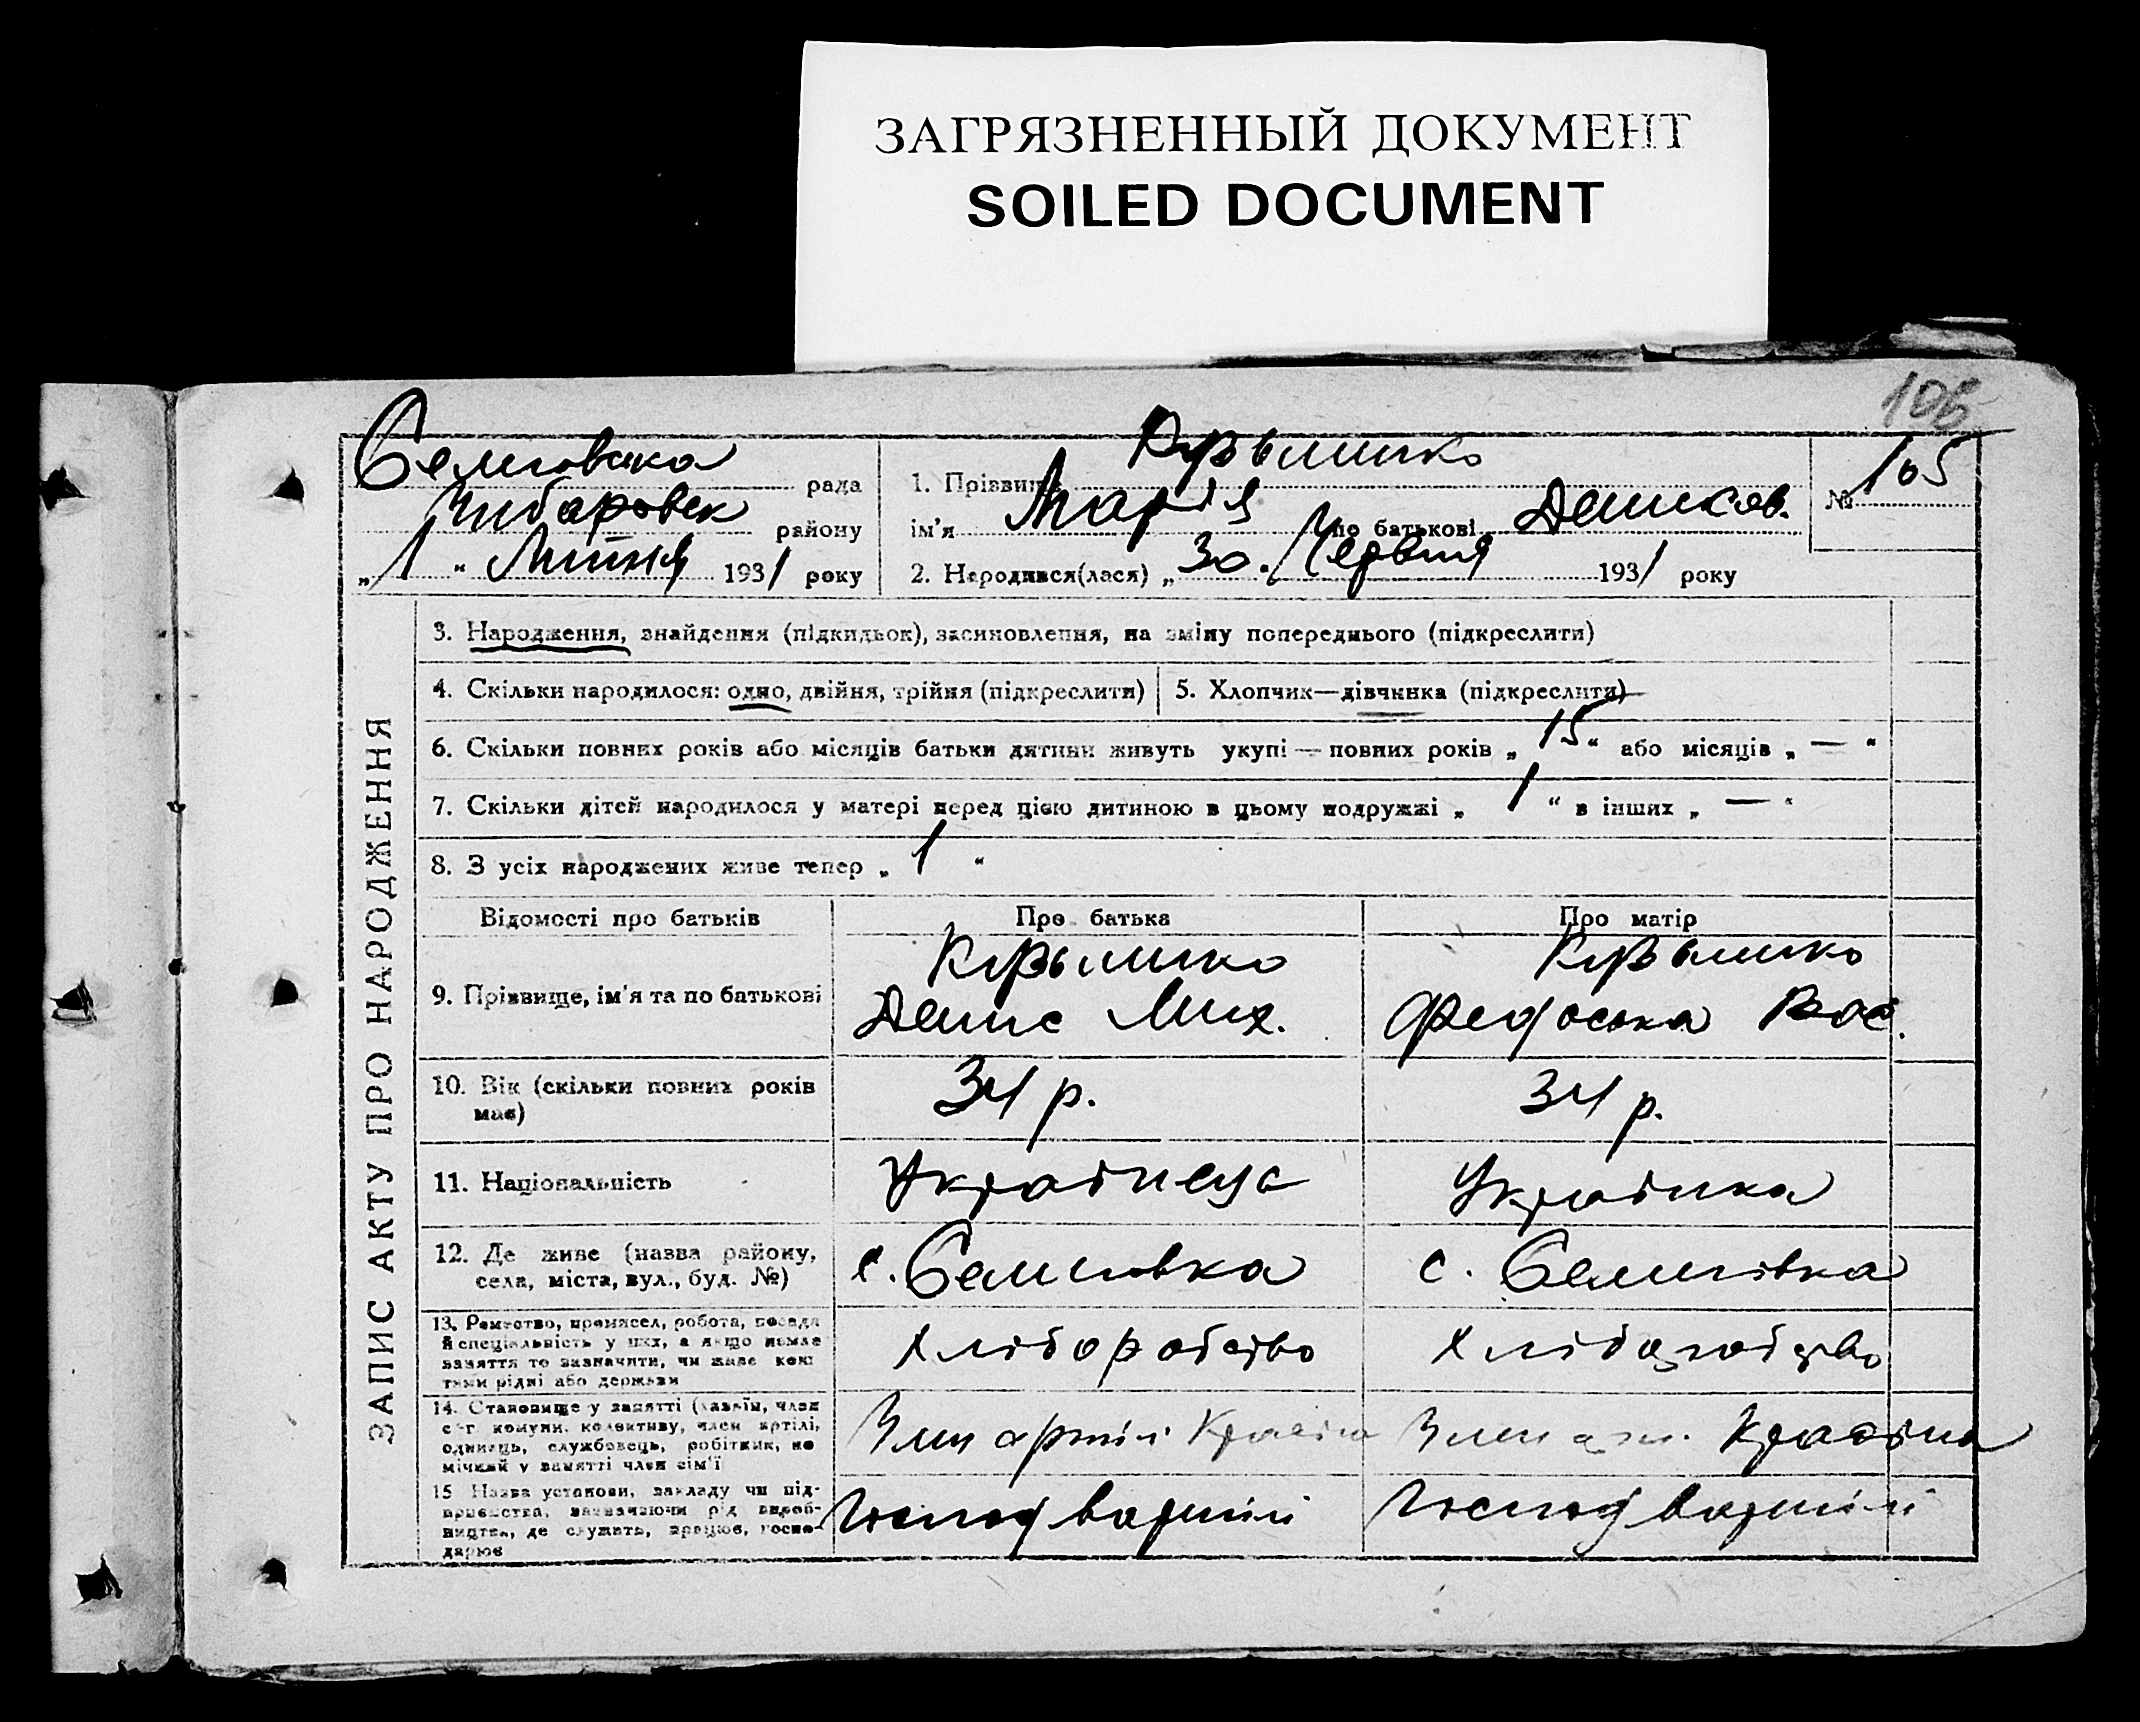 ЗАГРЯЗНЕННЫЙ ДОКУМЕНТ
SOILED DOCUMENT
106
рада
району
„ 1 “ Липня 1931 року
1. Прізвище
ім'я Марія по батькові Денисов.
2. Народився(лася) „ 30. Червня 1931 року
№ 105
ЗАПИС АКТУ ПРО НАРОДЖЕННЯ
3. Народження, знайдення (підкидьок), засиновлення, на зміну попереднього (підкреслити)
4. Скільки народилося: одно, двійня, трійня (підкреслити)
5. Хлопчик—дівчинка (підкреслити)
6. Скільки повних років або місяців батьки дитини живуть укупі — повних років „ 15 “ або місяців „ — “
7. Скільки дітей народилося у матері перед цією дитиною в цьому подружжі „ 1 “ в інших „ — “
8. З усіх народжених живе тепер „ 1 “
Відомості про батьків
Про батька
Про матір
9. Прізвище, ім'я та по батькові
Денис Мих.
Федоська Вас.
10. Вік (скільки повних років
має)
34 р.
34 р.
11. Національність
Українець
Українка
12. Де живе (назва району,
села, міста, вул., буд. №)
с. Семиговка
с. Семигівка
13. Ремество, промисел, робота, посада
й спеціяльність у них, а якщо немає
заняття то зазначити, чи живе кош
тами рідні або держави
Хліборобство
Хліборобство
14. Становище у занятті (хазяїн, член
с-г. комуни, колективу, член артілі,
одинець, службовець, робітник, по
мічний у занятті член сім'ї
Член артілі
Член арт.
15 Назва установи, закладу чи під-
приємства, зазначаючи рід вироб-
ництва, де служить, працює, госпо-
дарює
Господ в артілі
Господ в артілі